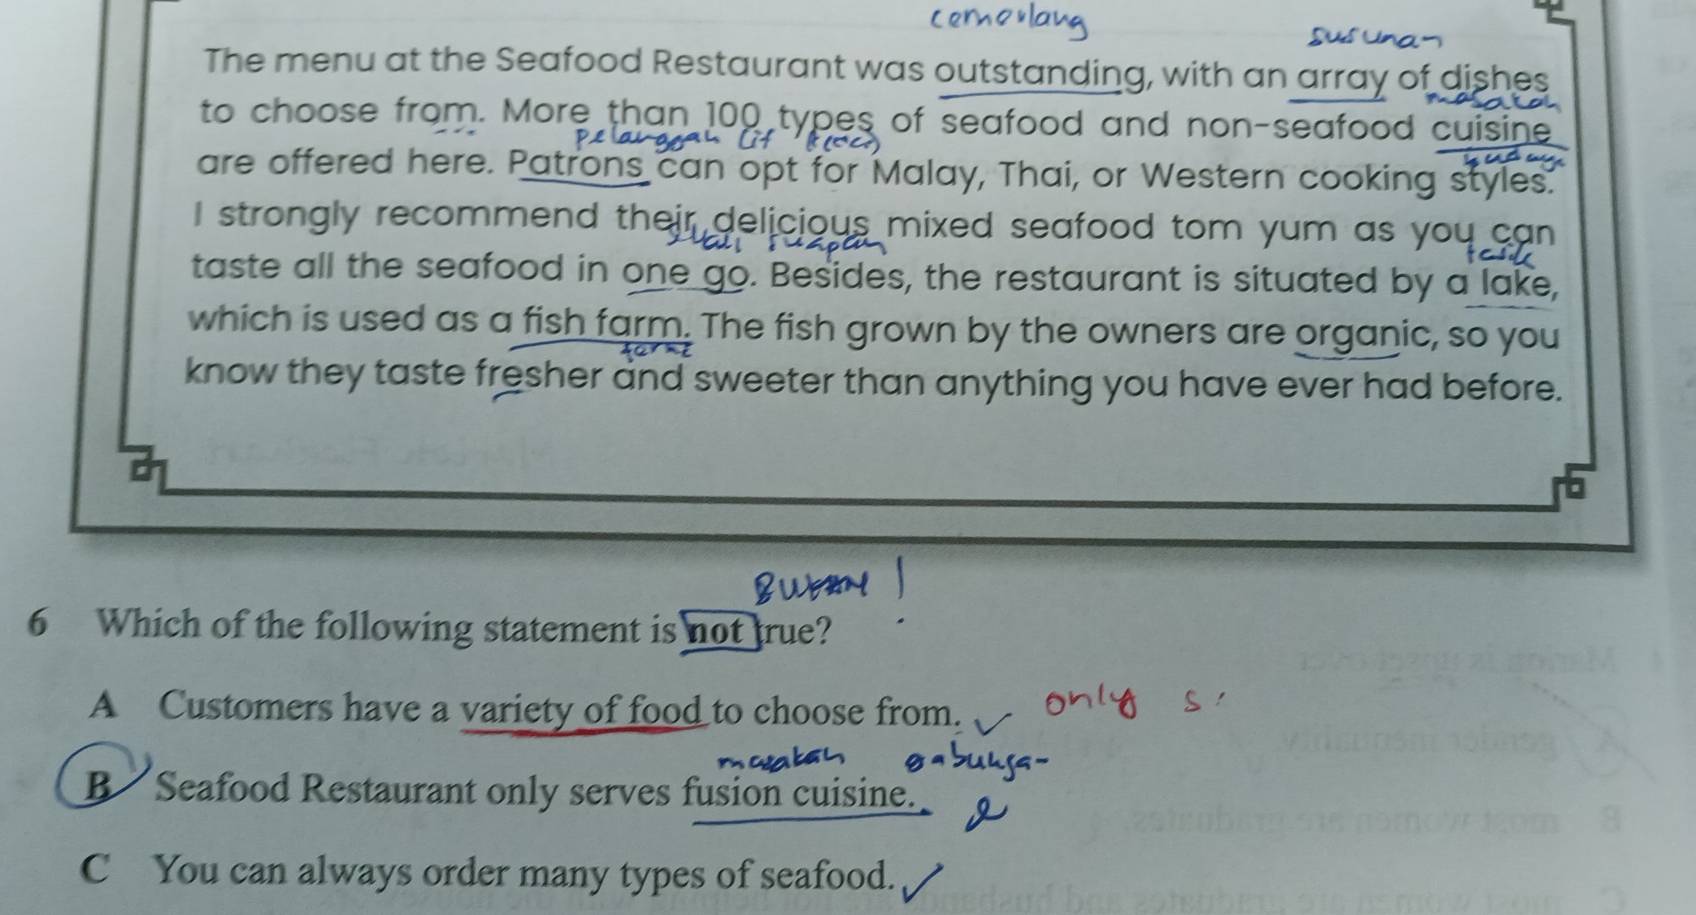 cemerlang
susunan
The menu at the Seafood Restaurant was outstanding, with an array of dishes
masakan
to choose from. More than 100 types of seafood and non-seafood cuisine
are offered here. Patrons can opt for Malay, Thai, or Western cooking styles.
I strongly recommend their delicious mixed seafood tom yum as you can
suapan
taste all the seafood in one go. Besides, the restaurant is situated by a lake,
which is used as a fish farm. The fish grown by the owners are organic, so you
know they taste fresher and sweeter than anything you have ever had before.
6 Which of the following statement is not true?
A Customers have a variety of food to choose from.
only s
masakan
B Seafood Restaurant only serves fusion cuisine.
C You can always order many types of seafood.